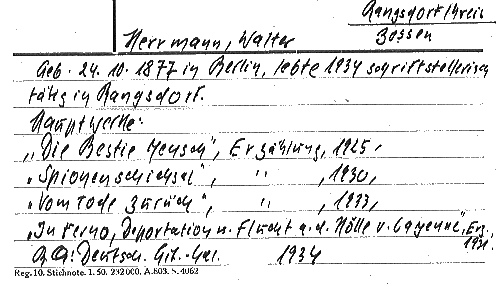 Rangsdorf Kreis
Herrmann, Walter
Zossen
Geb. 24. 10. 1877 in Berlin, lebte 1934 schriftstellerisch
tätig in Rangsdorf.
Hauptwerke:
„Die Bestie Mensch", Erzählung, 1925,
„Spionenschicksal", " , 1930,
„Vom Tode zurück", " , 1933,
„Inferno, Deportation u. Flucht a. d. Hölle v. Cayenne", Erz.,
1931.
Qu: Deutsch. Lit.-Kal. 1934
Reg. 10. Stichnote. 1. 50. 232000. A.803. S. 4062